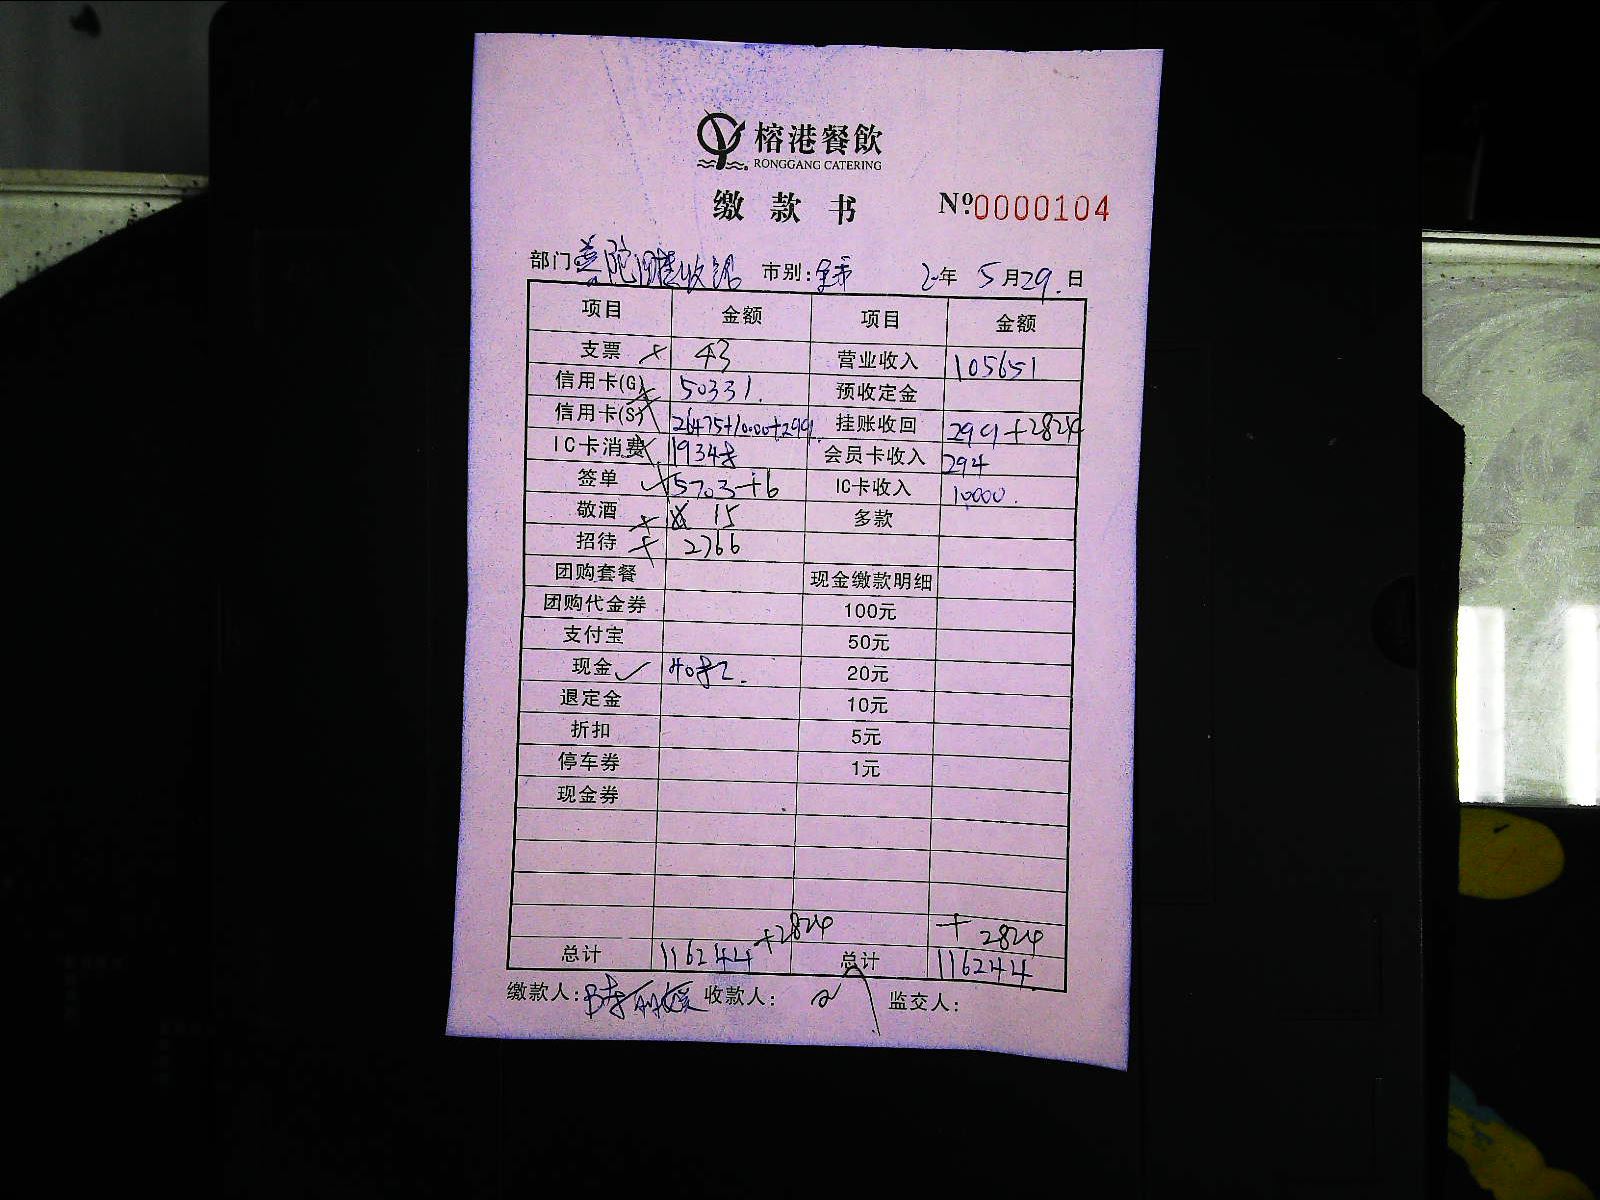 榕港餐飲
RONGGANG CATERING
缴 款 书 Nº 0000104
部门 普陀 收银 市别: 全市 2 年 5 月 29. 日
项目 金额 项目 金额
支票 43 营业收入 105651
信用卡(G) 50331. 预收定金
信用卡(S) 26475+10000+2991. 挂账收回 2991+2824
IC卡消费 会员卡收入 294
签单 5703+6 IC卡收入 10000.
敬酒 15 多款
招待 2766
团购套餐 现金缴款明细
团购代金券 100元
支付宝 50元
现金 20元
退定金 10元
折扣 5元
停车券 1元
现金券
+2824 +2824
总计 116244 总计 116244
缴款人: 收款人: 监交人: